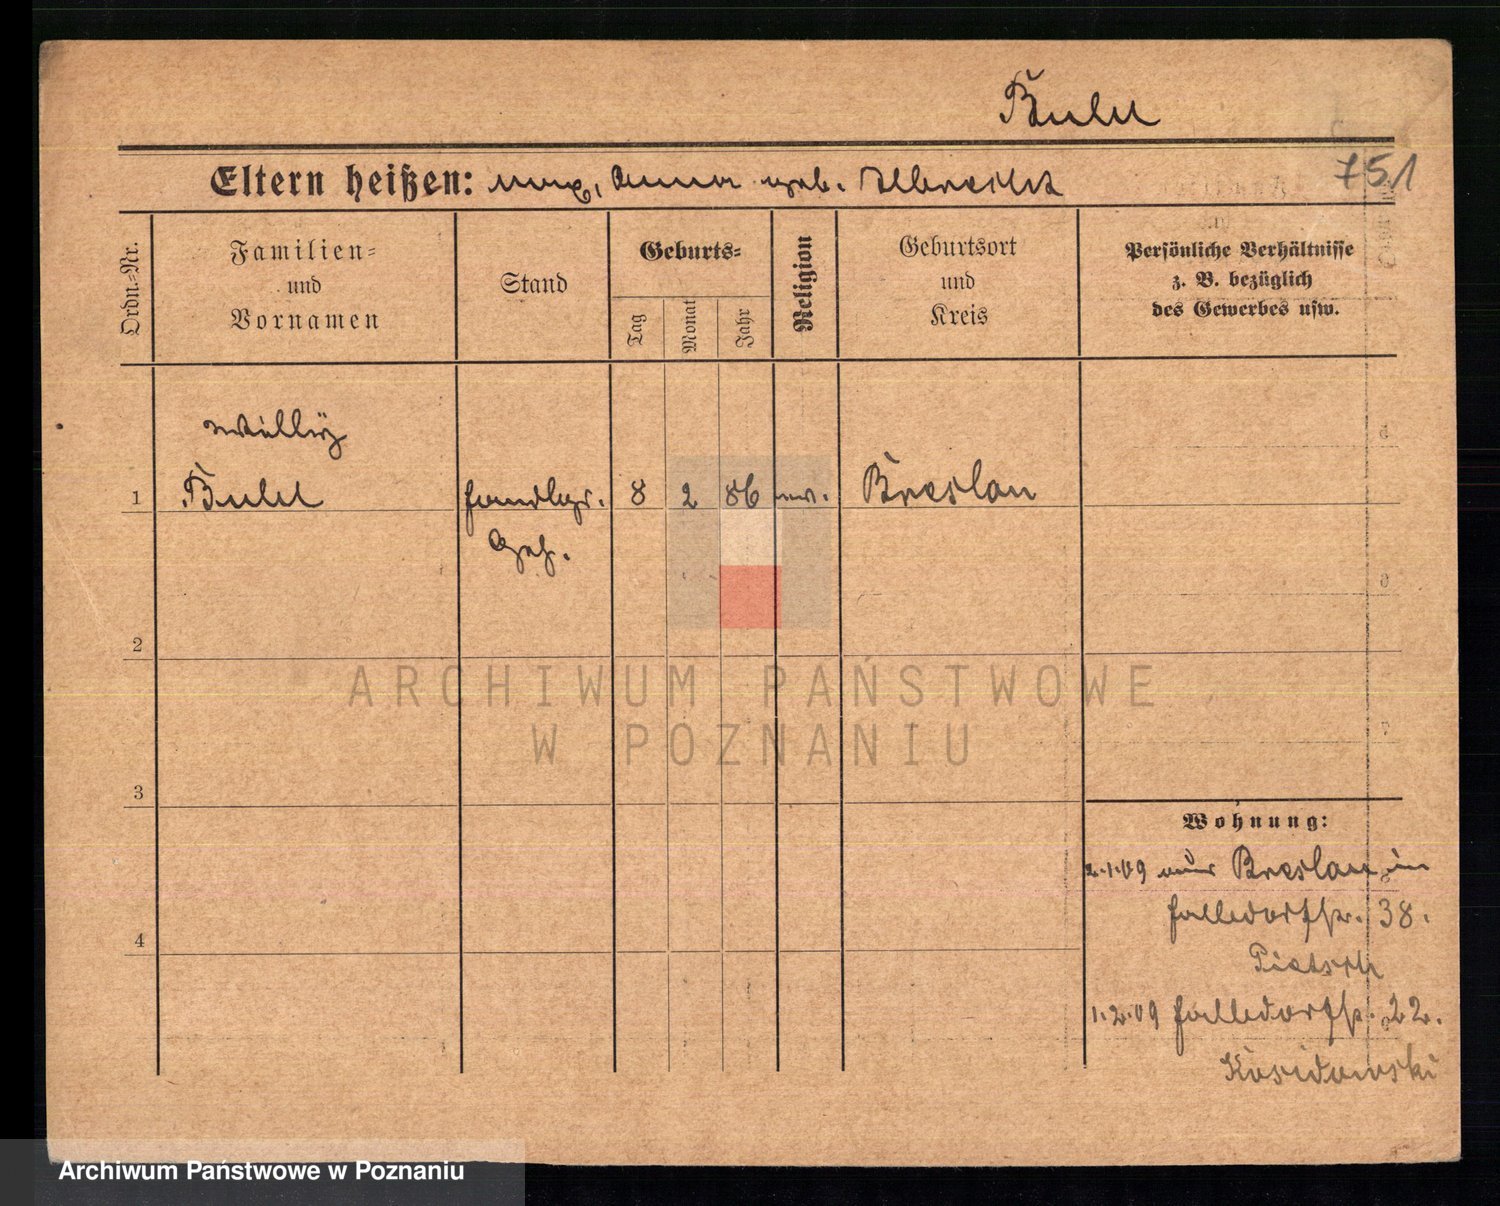 751
Eltern heißen: Max, Anna geb. Albrecht
Ordn.-Nr.
Familien-
und
Vornamen
Stand
Geburts-
Tag
Monat
Jahr
Religion
Geburtsort
und
Kreis
Persönliche Verhältnisse
z. B. bezüglich
des Gewerbes usw.
Willy
1 8 2 86 ev. Breslau
Geh.
2
3
4
Wohnung:
2.1.09 aus Breslau in
38.
Pietsch
1.2.09 22.
Kosidowski
ARCHIWUM PAŃSTWOWE
W POZNANIU
Archiwum Państwowe w Poznaniu